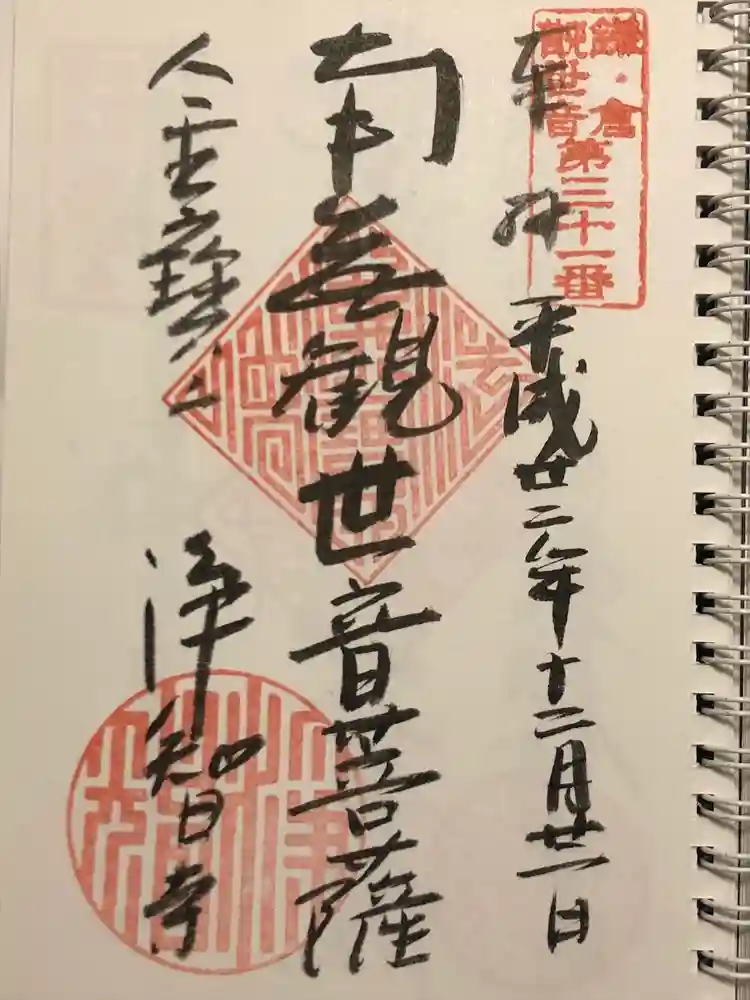 鎌・倉
觀世音
第三十一番
奉拝 平成廿二年十二月廿一日
南無観世音菩薩
金寶山 浄智寺